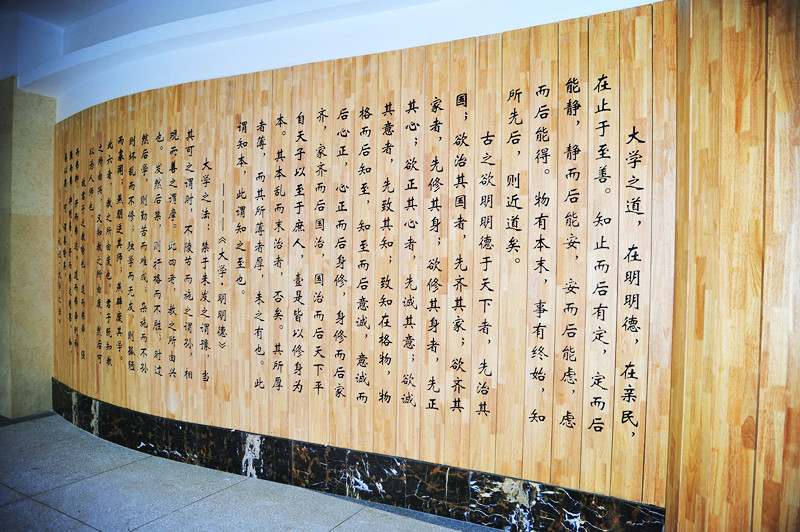 大学之道，在明明德，在亲民，
在止于至善。知止而后有定，定而后
能静，静而后能安，安而后能虑，虑
而后能得。物有本末，事有终始，知
所先后，则近道矣。
古之欲明明德于天下者，先治其
国；欲治其国者，先齐其家；欲齐其
家者，先修其身；欲修其身者，先正
其心；欲正其心者，先诚其意；欲诚
其意者，先致其知；致知在格物，物
格而后知至，知至而后意诚，意诚而
后心正，心正而后身修，身修而后家
齐，家齐而后国治，国治而后天下平
自天子以至于庶人，壹是皆以修身为
本。其本乱而末治者，否矣。其所厚
者薄，而其所薄者厚，未之有也。此
谓知本，此谓知之至也。
————《大学·明明德》
大学之法：禁于未发之谓豫，当
其可之谓时，不陵节而施之谓孙，相
观而善之谓摩。此四者，教之所由兴
也。发然后禁，则扞格而不胜；时过
然后学，则勤苦而难成；杂施而不孙
则坏乱而不修；独学而无友，则孤陋
而寡闻；燕朋逆其师；燕辟废其学。
此六者，教之所由废也。君子既知教
之所由兴，又知教之所由废，然后可
以为人师也。